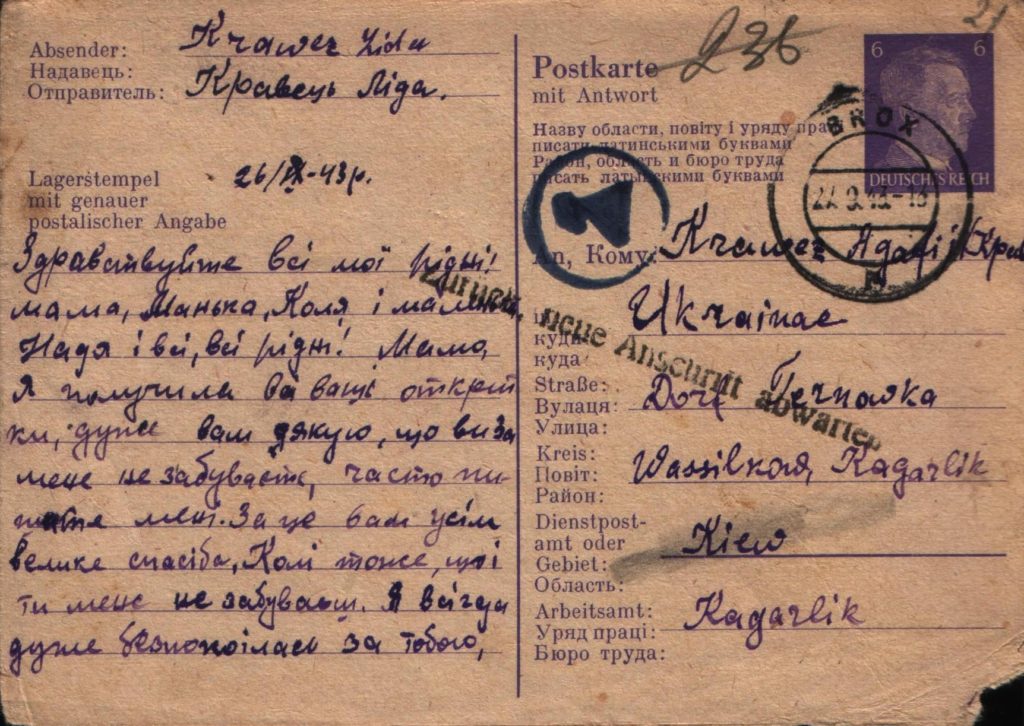 Absender: Krawez Lida
Надавець:
Отправитель: Кравець Ліда.
Lagerstempel
mit genauer
postalischer Angabe
26/IX-43р.
Здравствуйте всі мої рідні!
мама, Манька, Коля і
Надя і всі, всі рідні! Мамо,
Я получила ваші открит
ки, дуже вам дякую, що ви за
мене не забуваєте, часто пи
мені. За це вам усім
велике спасіба, Колі тоже, що і
ти мене не забуваєш. Я всігда
дуже безпокоілась за тобою,
236
21
Postkarte
mit Antwort
Назву области, повіту і уряду пра
писати латинськими буквами
Район, область и бюро труда
писать латынскими буквами
6 6
DEUTSCHES REICH
BROX
A
An, Кому: Krawez Агафії Крав
Zurück, neue Anschrift abwarten
Ukrainae
куди
куда
Straße:
Вулаця: Dorf
Улица:
Kreis:
Повіт: Wassilkow, Kagarlik
Район:
Dienstpost-
amt oder Kiew
Gebiet:
Область:
Arbeitsamt: Kagarlik
Уряд праці:
Бюро труда: